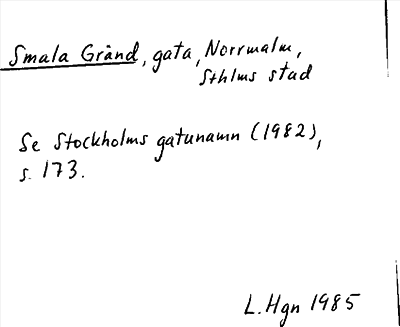 Smala Gränd, gata, Norrmalm,
Sthlms stad
Se Stockholms gatunamn (1982),
s. 173.
L. Hgn 1985